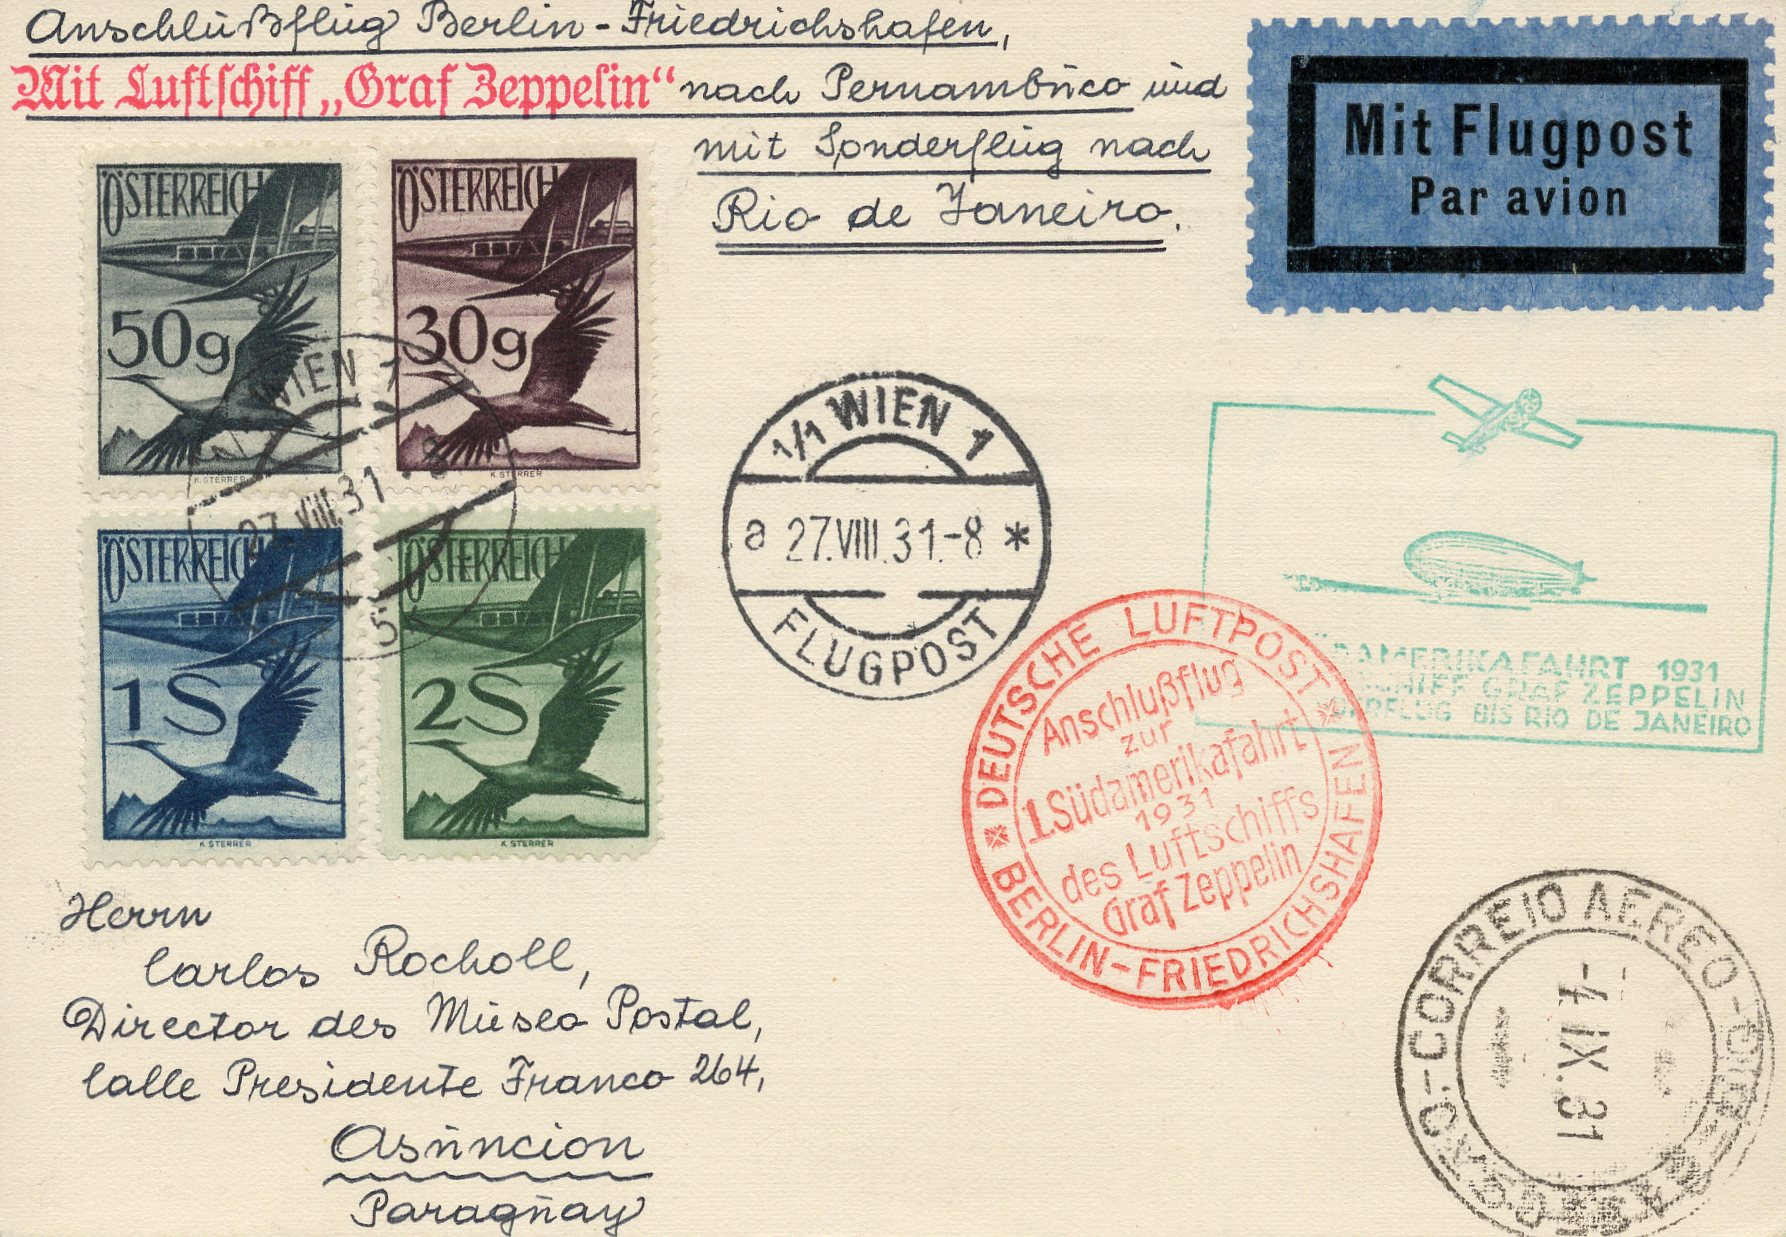 Anschlußflug Berlin-Friedrichshafen,
Mit Luftschiff „Graf Zeppelin“ nach Pernambuco und
mit Sonderflug nach
Rio de Janeiro.
Mit Flugpost
Par avion
ÖSTERREICH
50g
K. STERRER
ÖSTERREICH
30g
K. STERRER
ÖSTERREICH
1S
K STERRER
ÖSTERREICH
2S
K STERRER
WIEN
27.VIII.31.-8
1/1 WIEN 1
a 27.VIII.31.-8 *
FLUGPOST
DEUTSCHE LUFTPOST
Anschlußflug
zur
1.Südamerikafahrt
1931
des Luftschiffs
Graf Zeppelin
BERLIN-FRIEDRICHSHAFEN
DAMERIKAFAHRT 1931
SCHIFF GRAF ZEPPELIN
BIS RIO DE JANEIRO
CORREIO AEREO
-4 IX.31
Herrn
Carlos Rocholl,
Director des Museo Postal,
Calle Presidente Franco 264,
Asuncion
Paraguay